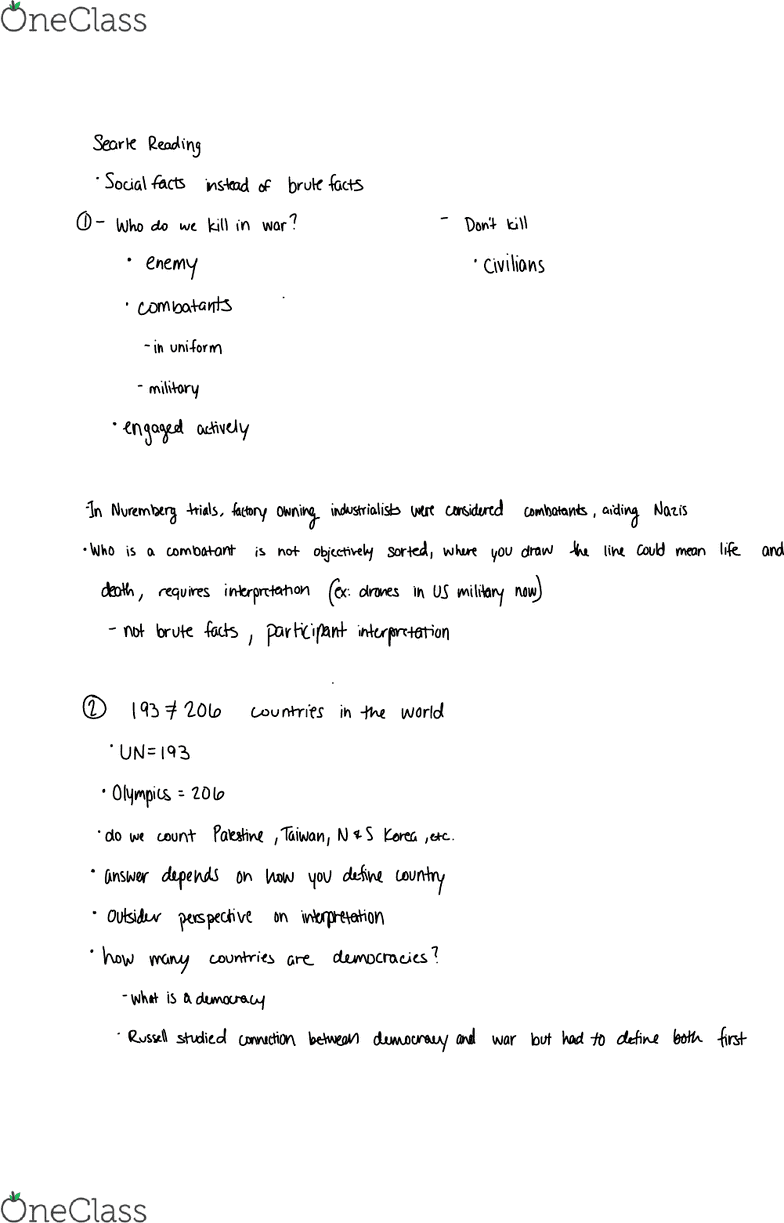 OneClass
Searle Reading
· Social facts instead of brute facts
① - Who do we kill in war? - Don't kill
· enemy · civilians
· combatants
- in uniform
- military
· engaged actively
- In Nuremberg trials, factory owning industrialists were considered combatants, aiding Nazis
· Who is a combatant is not objectively sorted, where you draw the line could mean life and
death, requires interpretation (ex: drones in US military now)
- not brute facts, participant interpretation
② 193 ≠ 206 countries in the world
· UN = 193
· Olympics = 206
· do we count Palestine, Taiwan, N & S Korea, etc.
· answer depends on how you define country
· outsider perspective on interpretation
· how many countries are democracies?
- what is a democracy
· Russell studied connection between democracy and war but had to define both first
OneClass